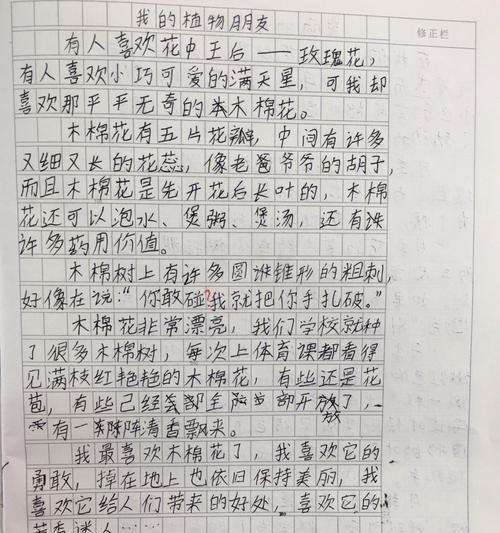 我的植物朋友
修正栏
有人喜欢花中王后——玫瑰花，
有人喜欢小巧可爱的满天星，可我却
喜欢那平平无奇的木棉花。
木棉花有五片花瓣，中间有许多
又细又长的花蕊，像老爸爷爷的胡子，
而且木棉花是先开花后长叶的，木棉
花还可以泡水、煲粥、煲汤，还有
许多药用价值。
木棉树上有许多圆锥形的粗刺，
好像在说：“你敢碰?我就把你手扎破。”
木棉花非常漂亮，我们学校就种
了很多木棉树，每次上体育课都看得
见满枝红艳艳的木棉花，有些还是花
苞，有些已经全部开放了，
有一阵阵清香飘来。
我最喜欢木棉花了，我喜欢它的
勇敢，掉在地上也依旧保持美丽，我
喜欢它给人们带来的好处，喜欢它的